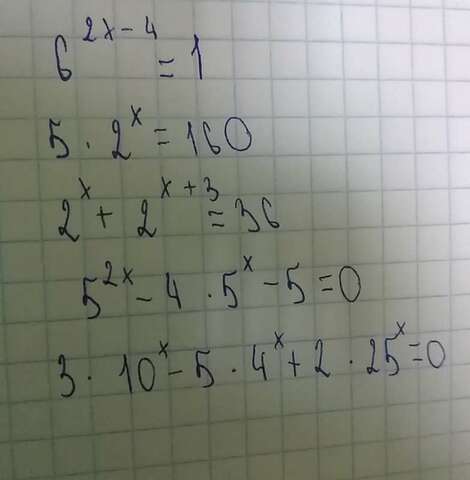 6^{2x-4} = 1
5 · 2^x = 160
2^x + 2^{x+3} = 36
5^{2x} - 4 · 5^x - 5 = 0
3 · 10^x - 5 · 4^x + 2 · 25^x = 0